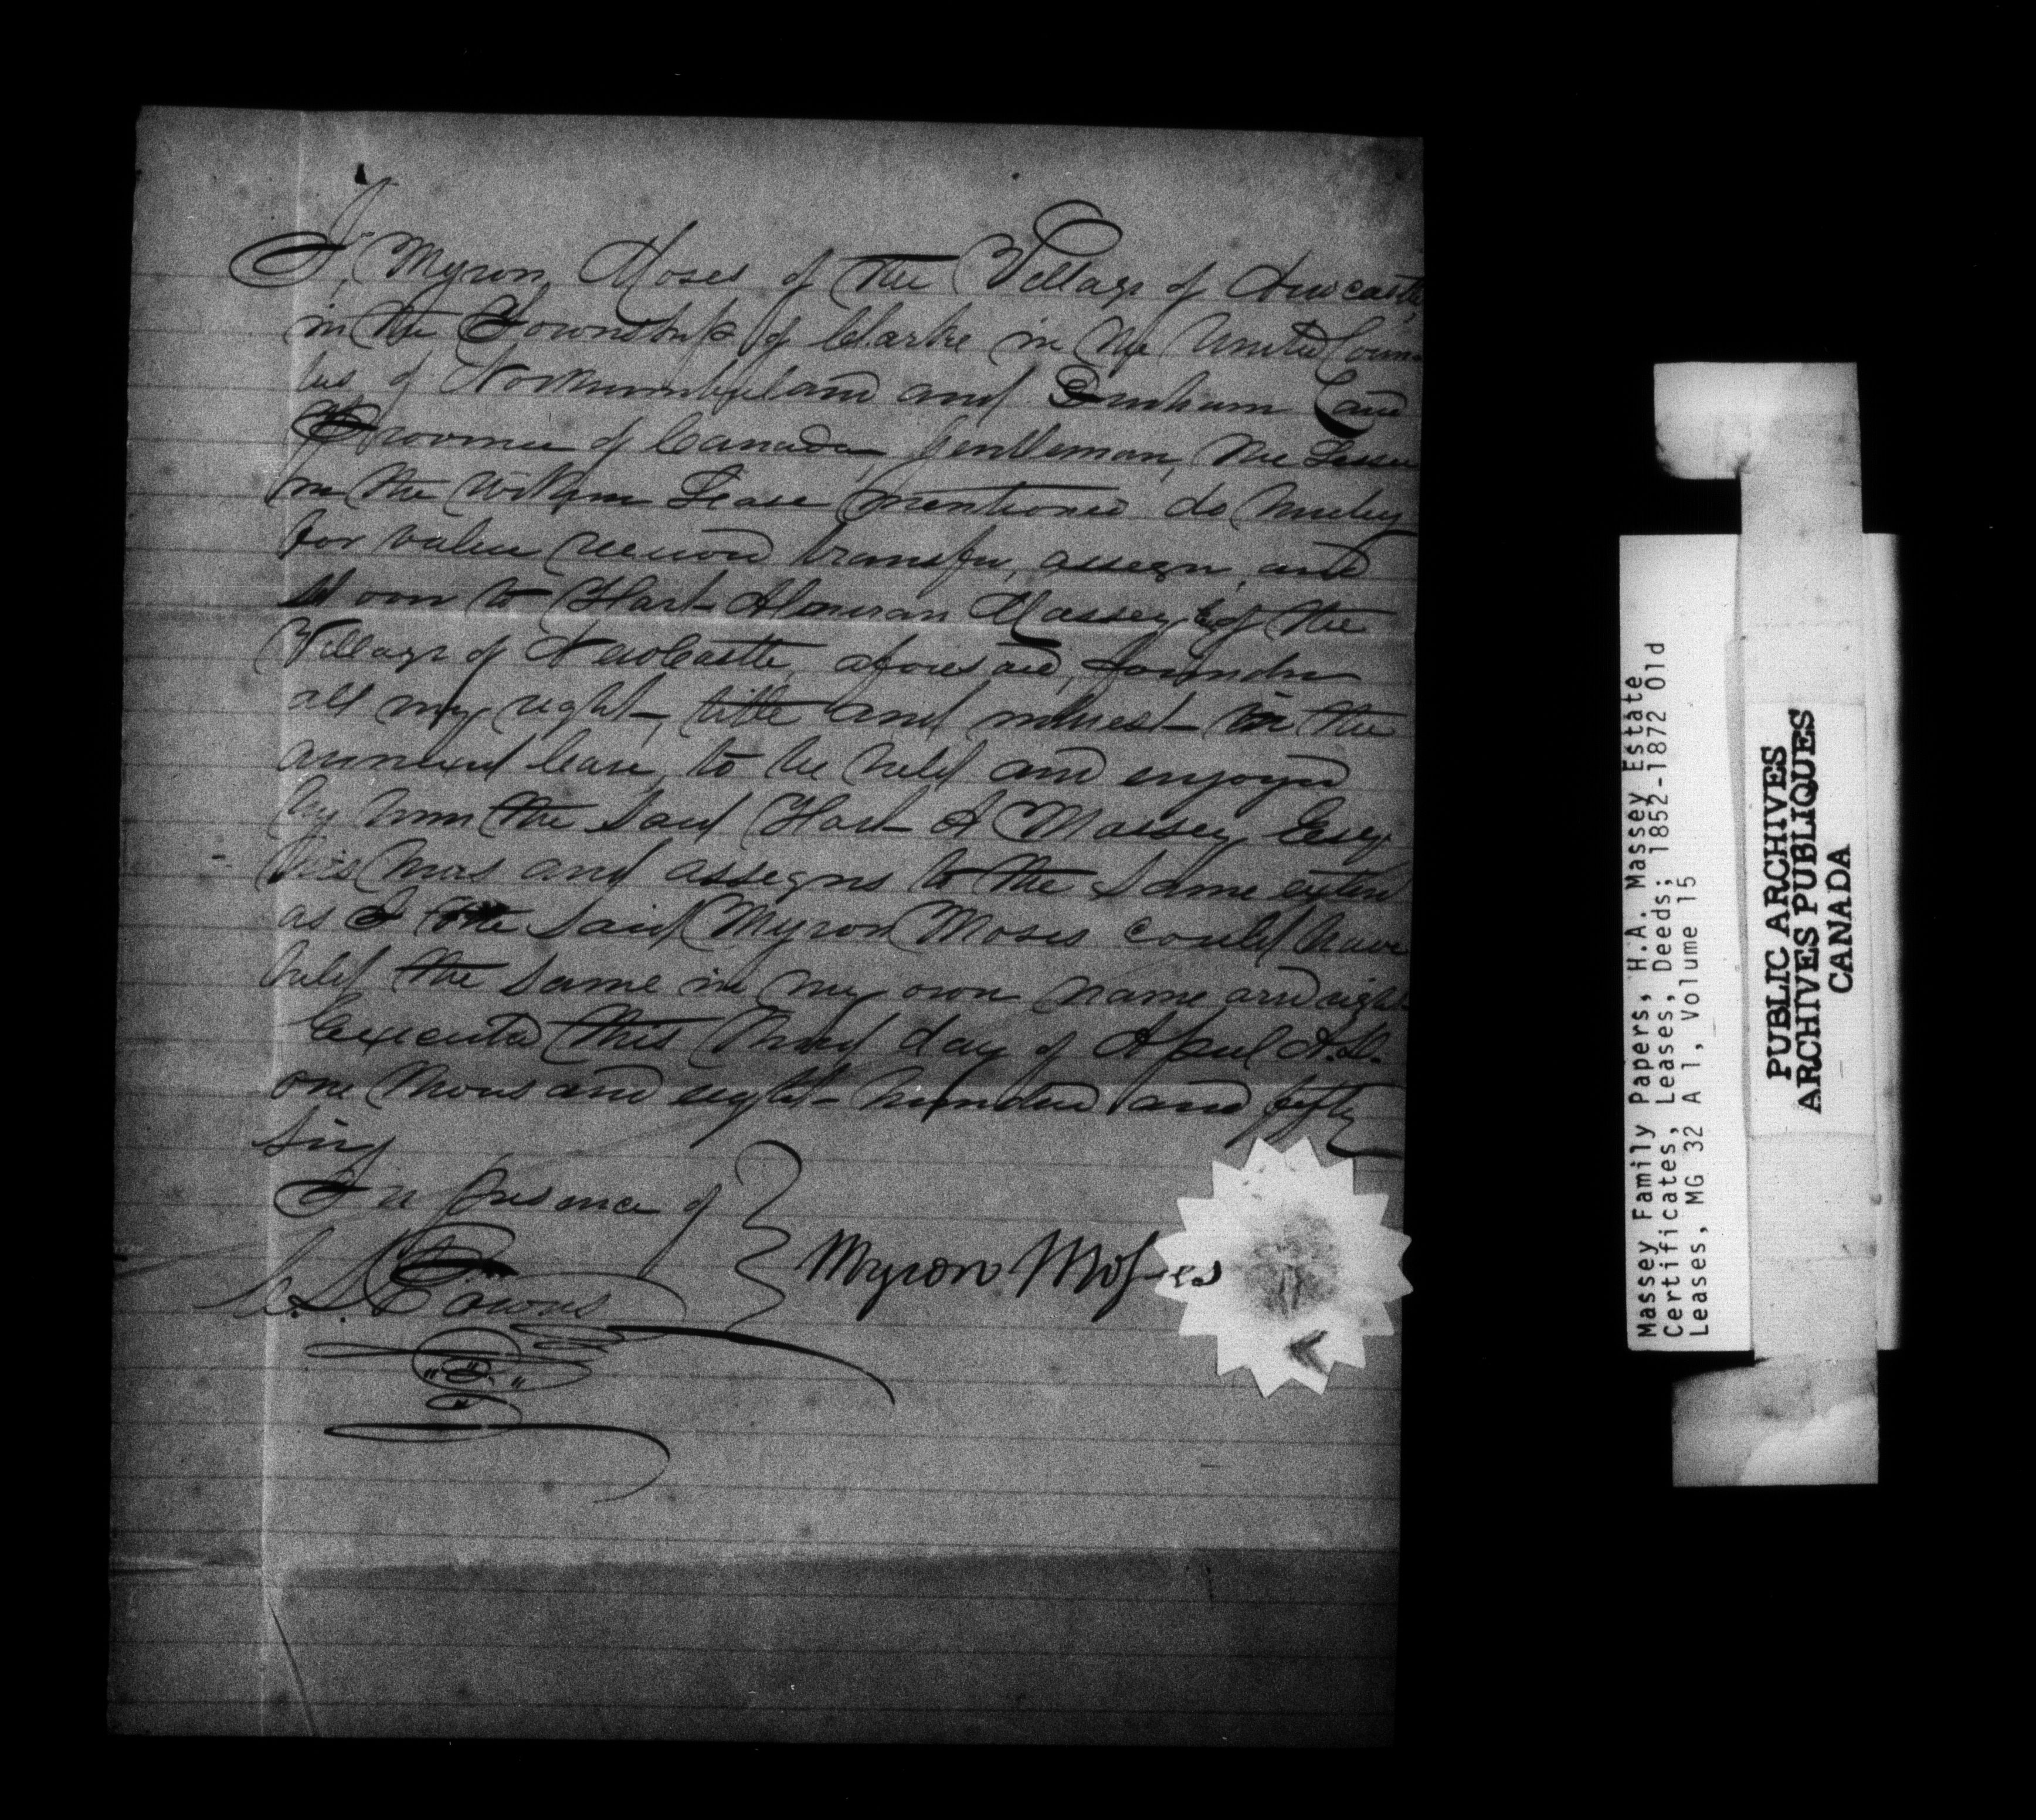 I, Myron Moses of the Village of Newcastle
in the Township of Clarke in the United Coun-
ties of Northumberland and Durham and
Province of Canada, Gentleman, the Lessee
in the within Lease mentioned do hereby
for value received transfer, assign, and
to Hart Almerrin Massey of the
Village of Newcastle, aforesaid, founder
all my right, title and interest in the
annexed lease, to be held and enjoyed
by him the said Hart A Massey, Esq.
his heirs and assigns to the same extent
as I the said Myron Moses could have
held the same in my own name and right
Executed this third day of April A.D.
one thousand eight hundred and fifty
six
In presence of
Myron Moses
Massey Family Papers, H.A. Massey Estate
Certificates, Leases, Deeds; 1852-1872 Old
Leases, MG 32 A 1, Volume 15
PUBLIC ARCHIVES
ARCHIVES PUBLIQUES
CANADA